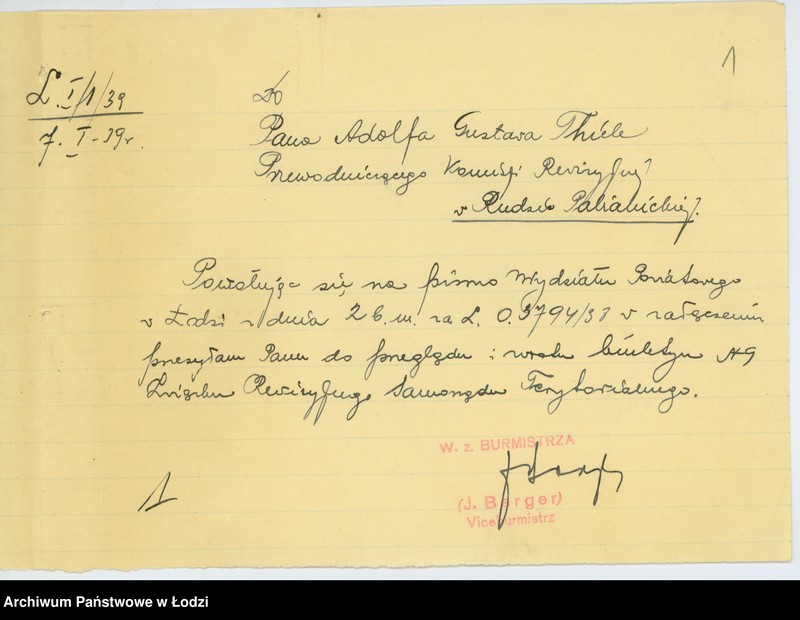 1
L. I/1/39
7. I-39r.
Do
Pana Adolfa Gustava Thiele
Przewodniczącego Komisji Rewizyjnej
w Rudzie Pabianickiej.
Powołując się na pismo Wydziału Powiatowego
w Łodzi z dnia 2 b.m. za L. O. 3794/38 w załączeniu
przesyłam Panu do przeglądu i zwrotu biuletyn № 9
Związku Rewizyjnego Samorządu Terytorialnego.
W. z. BURMISTRZA
(J. Berger)
Viceburmistrz
1
Archiwum Państwowe w Łodzi